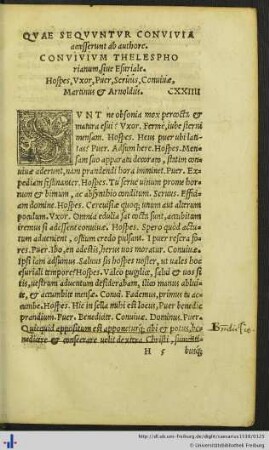 QVAE SEQVVNTVR CONVIVIA
accesserunt ab authore.
CONVIVIVM THELESPHO
rianum, siue Esuriale.
Hospes, Vxor, Puer, Seruus, Conuiuæ,
Martinus & Arnoldus. CXXIIII
SVNT ne obsonia mox percocta &
matura esui? Vxor. Fermè, iube sterni
mensam. Hospes. Heus puer ubi lati
tas? Puer. Adsum here. Hospes. Men
sam suo apparatu decorato, statim con
uiuæ aderunt, nam prandendi hora imminet. Puer. Ex
pediam festinanter. Hospes. Tu serue uinum prome hor
num & bimum, ac absynthio conditum. Seruus. Effici
am domine. Hospes. Ceruisiæ quoq; unum aut alterum
pondum. Vxor. Omnia edulia sat cocta sunt, accubitum
iremus si adessent conuiuæ. Hospes. Spero quod actu
tum aduenient, ostium credo pulsant. I puer resera fo
res. Puer. Ibo, en adestis, herus uos moratur. Conuiuæ.
Ipsi iam adsumus. Saluus sis hospes noster, ut uales hoc
esuriali tempore? Hospes. Valeo pugilicè, salui & uos si
tis, uestrum aduentum desiderabam, ilico manus ablui
te, & accumbite mensæ. Conui. Fademus, primus tu ac
cumbe. Hospes. Hic in sella mihi est locus, Puer benedic
prandium. Puer. Benedicite. Conuiuæ. Dominus. Puer.
Quicquid appositum est apponeturq; cibi & potus, be
nedicere & consecrare uelit dextra Christi, summi
H 5 busq;
http://dl.ub.uni-freiburg.de/diglit/camerarius1538/0123
© Universitätsbibliothek Freiburg